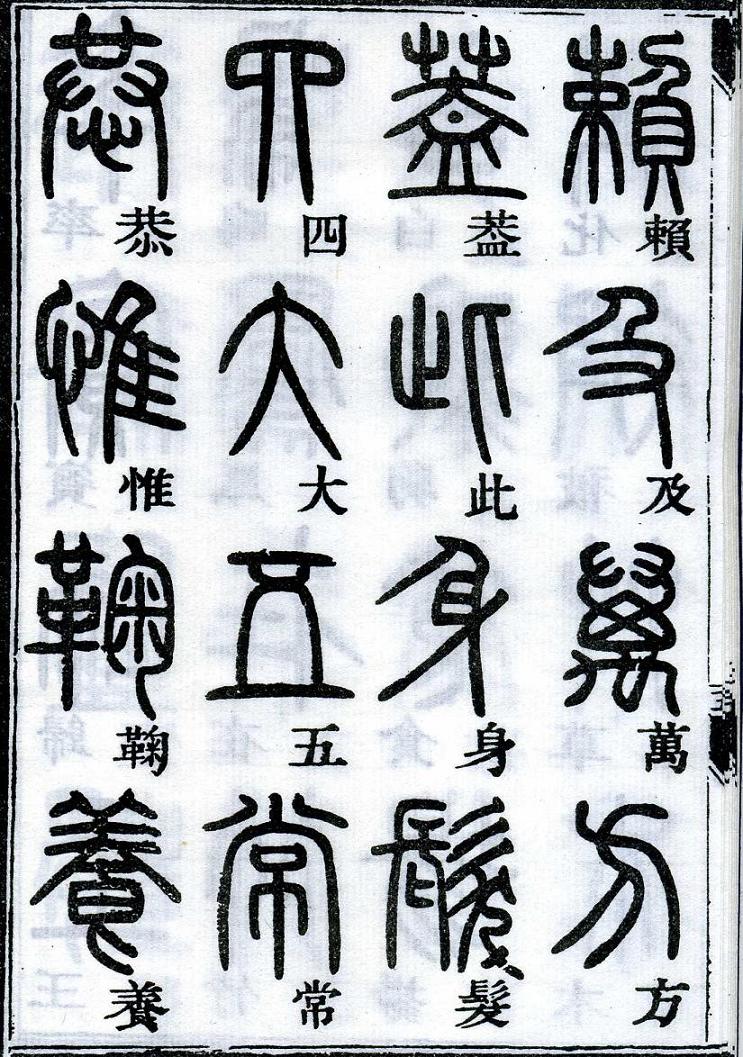 賴及萬方
葢此身髮
四大五常
恭惟鞠養